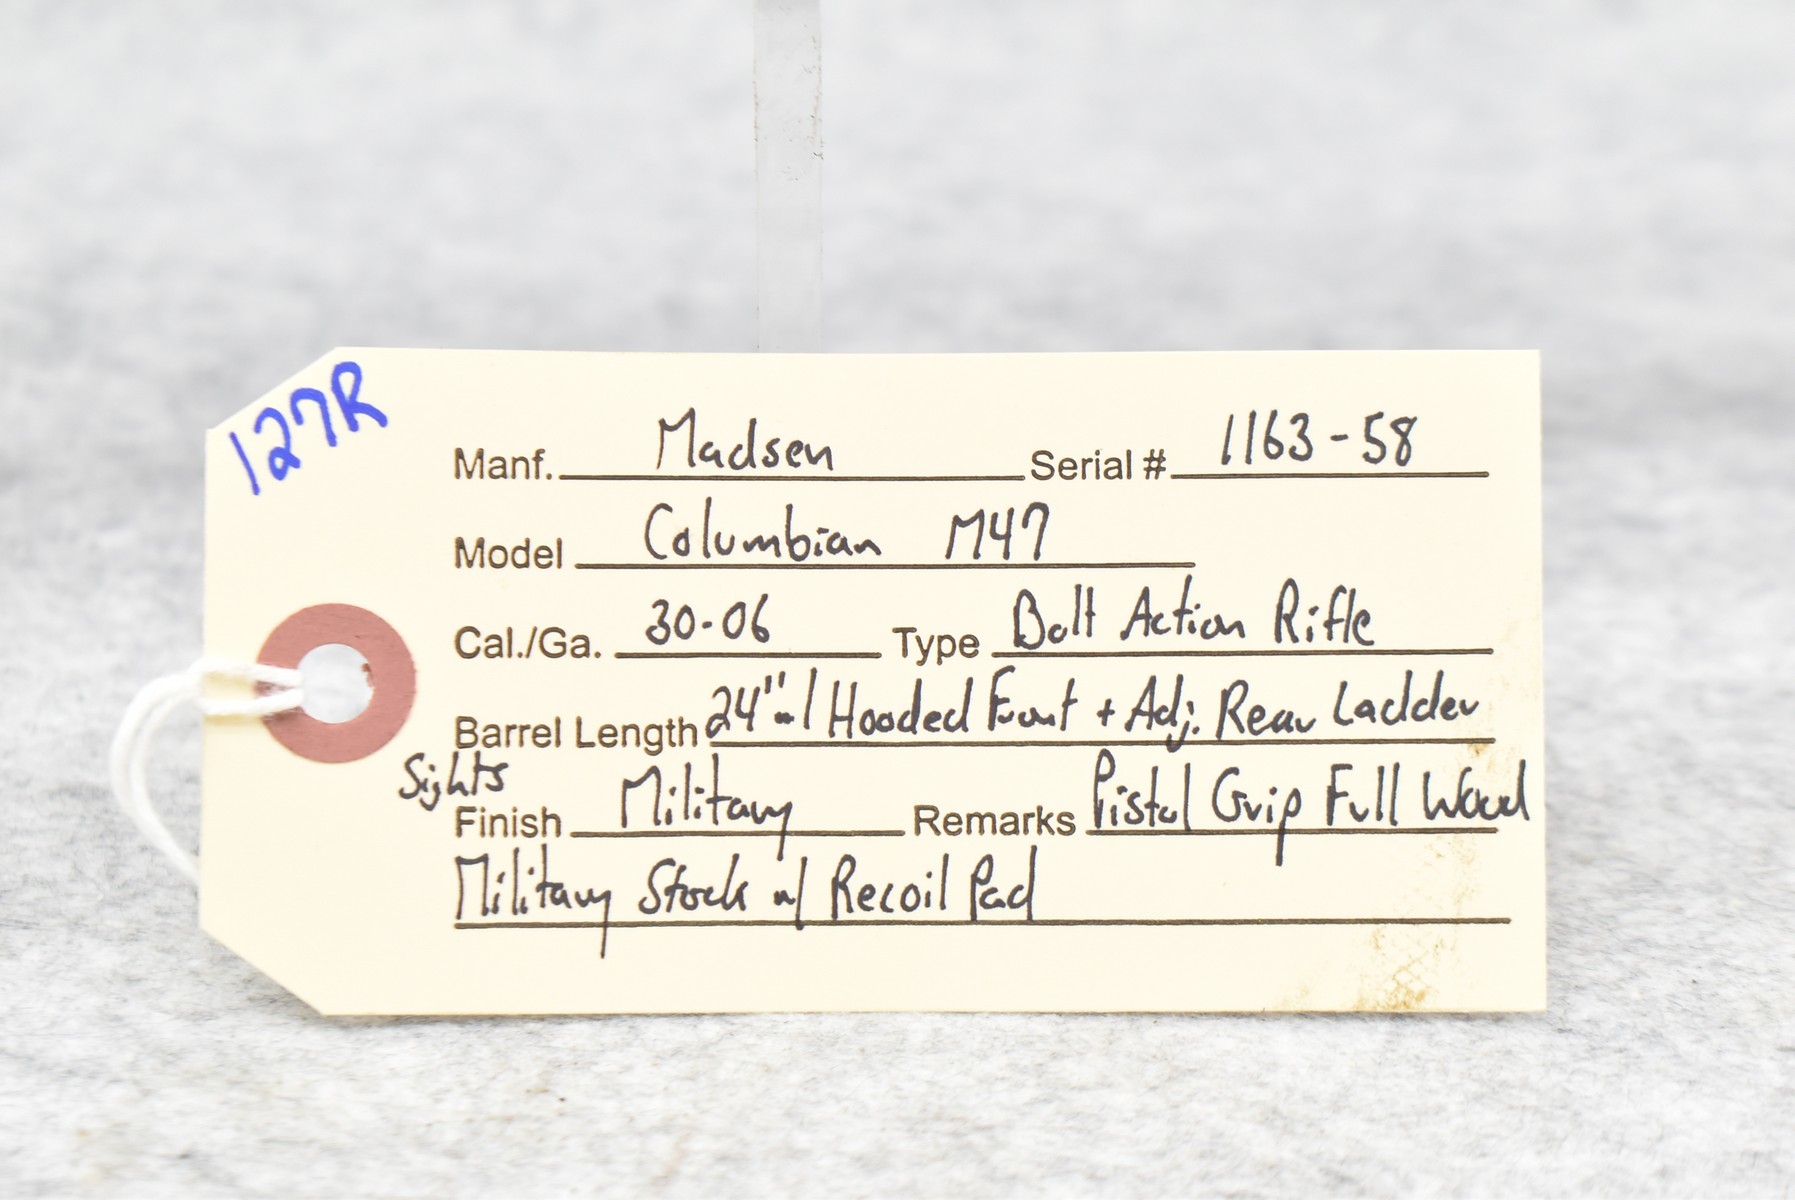 127R
Manf. Madsen Serial # 1163-58
Model Columbian M47
Cal./Ga. 30-06 Type Bolt Action Rifle
Barrel Length 24" w/ Hooded Front + Adj. Rear Ladder
Sights
Finish Military Remarks Pistol Grip Full Wood
Military Stock w/ Recoil Pad